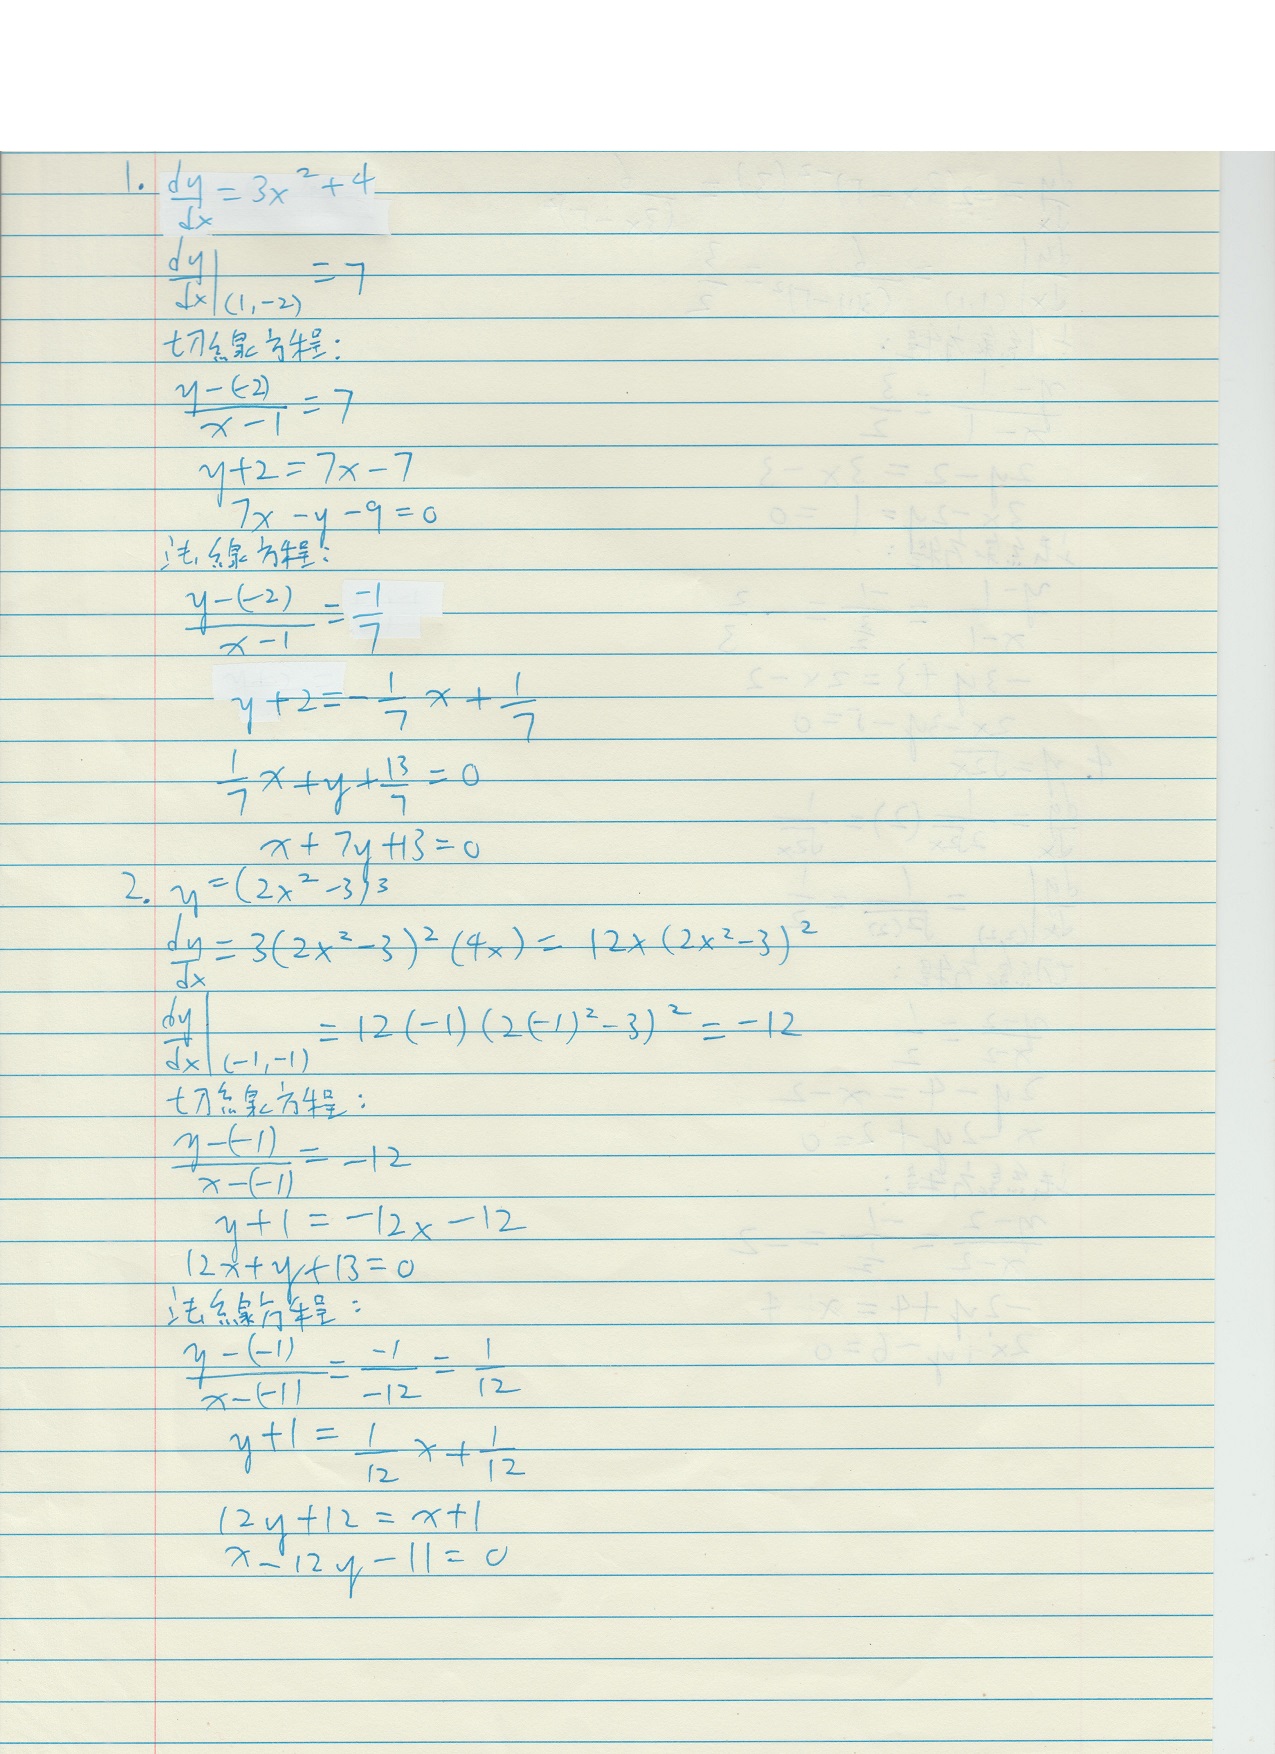 1. dy/dx = 3x² + 4
dy/dx|(1,-2) = 7
切線方程:
y-(-2)/x-1 = 7
y+2 = 7x-7
7x-y-9=0
法線方程:
y-(-2)/x-1 = -1/7
y+2=-1/7 x+1/7
1/7 x+y+13/7=0
x+7y+13=0
2. y=(2x²-3)³
dy/dx = 3(2x²-3)²(4x) = 12x(2x²-3)²
dy/dx|(-1,-1) = 12(-1)(2(-1)²-3)² = -12
切線方程:
y-(-1)/x-(-1) = -12
y+1 = -12x-12
12x+y+13=0
法線方程:
y-(-1)/x-(-1) = -1/-12 = 1/12
y+1 = 1/12 x+1/12
12y+12 = x+1
x-12y-11=0